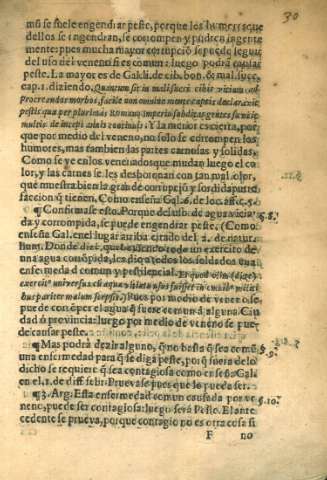 30
mũ se suele engendrar peste, porque los humores que
dellos se engendran, se corrompen y pudren ingente
mente: pues mucha mayor corrupciõ se puede seguir
del uso del veneno si es comun: luego podra causar
peste. La mayor es de Gal.li. de cib. bon. & mal. succ.
cap.1. diziendo. Quantum sit in mali succi cibis vitium ad
procreandos morbos, facile
pestis que per plurimas Romano imperio subditas gentes
multos, inceps annis continuis. Y la menor es cierta, por
que por medio del veneno, no solo se corrompen los
humores, mas tambien las partes carnosas y solidas.
Como se ve en los venenados que mudan luego el co
lor, y las carnes se les desboronan con tan mal olor,
que muestra bien la gran de corrupciõ y sordida putre
faccion q̃ tienen. Como enseña Gal.6. de loc. affec. 5.
¶ Confirmase esto. Porque del uso de agua vicia
da y corrompida, se puede engendrar peste, (Como
enseña Gal. en el lugar arriba citado del 2. de natu. hu
man. Donde dize, que beviendo todo un exercito de
una agua corrõpida, les dio a todos los soldados una
enfermedad comun y pestilencial. Et quod olim (dize)
exercitui universo
bus pariter malum
puede corromper el agua q̃ fuere comun á alguna Ciu
dad ó provincia: luego por medio de veneno se pue
de causar peste.
¶ Mas podrà dezir alguno, q̃ no basta q̃ sea comũ
una enfermedad para q̃ se diga peste, por q̃ fuera de lo
dicho se requiere q̃ sea contagiosa como enseña Gal.
en el.1. de diff. febr. Pruevase pues que lo pueda ser.
¶ 3. Arg. Esta enfermedad comun causada por ve
neno, puede ser contagiosa: luego serà Peste. El ante
cedente se prueva, porque contagio no es otra cosa si
F no
§.8.
§.9.
§.10.